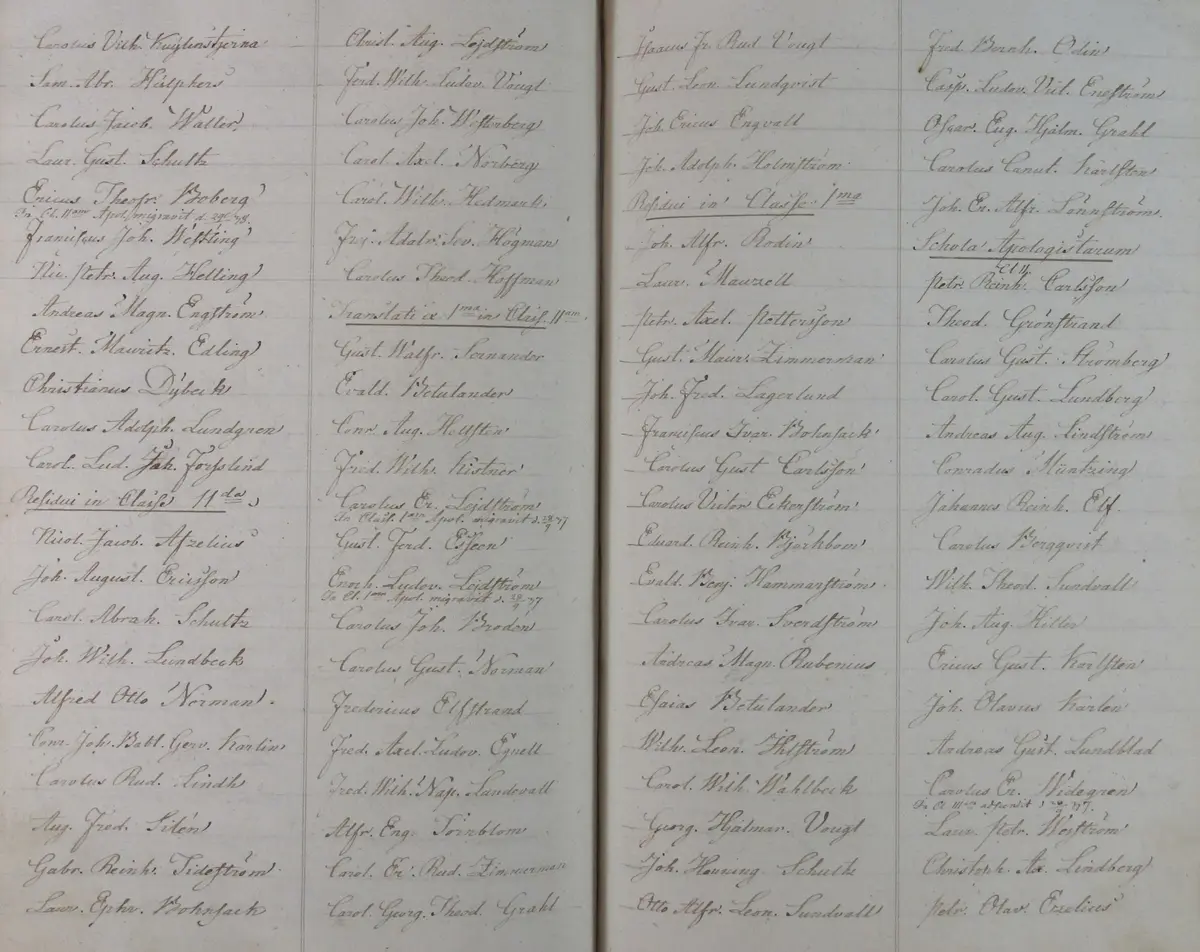 Carolus Vilh. Kuylenstjerna
Sam. Abr. Hülphers
Carolus Jacob. Waller
Laur. Gust. Schultz
Ericus Theofr. Boberg
In Cl. II Apol. migravit d.
Franciscus Joh. Westling
Nic. Petr. Aug. Helling
Andreas Magn. Engström
Ernest. Mauritz. Edling
Christianus Dybeck
Carolus Adolph. Lundgren
Carol. Lud. Joh. Forsslund
Residui in Classe II da
Nicol. Jacob. Afzelius
Joh. August. Ericsson
Carol. Abrah. Schultz
Joh. Wilh. Lundbeck
Alfred Otto Norman
Conr. Joh. Babt. Gerv. Karlin
Carolus Rud. Lindh
Aug. Fred. Silén
Gabr. Reinh. Tideström
Laur. Ephr. Bohnsack
Christ. Aug. Lojdström
Ferd. Wilh. Ludov. Vougt
Carolus Joh. Westerberg
Carol. Axel. Norberg
Carol. Wilh. Hedmark
Adolr. Sev. Högman
Carolus Theod. Hoffman
Translati e I ma in Class. II am
Gust. Walfr. Sernander
Evald. Betulander
Conr. Aug. Hellsten
Fred. Wilh. Kistner
Carolus Er. Lojdström
In Class. I am Apol. migravit d. 28/9 47
Gust. Ferd. Essen
Enoch. Ludov. Lojdström
In Cl. I am Apol. migravit d. 28/9 47
Carolus Joh. Broden
Carolus Gust. Norman
Fredericus Elfstrand
Fred. Axel. Ludov. Egnell
Fred. Wilh. Nap. Sundevall
Alfr. Eng. Törnblom
Carol. Er. Rud. Zimmerman
Carol. Georg. Theod. Grahl
Isaacus Fr. Rud. Vougt
Gust. Leon. Lundqvist
Joh. Ericus Engvall
Joh. Adolph. Holmström
Residui in Classe I ma
Joh. Alfr. Rodin
Laur. Mauzell
Petr. Axel. Pettersson
Gust. Maur. Zimmerman
Joh. Fred. Lagerlund
Franciscus Ivar. Bohnsack
Carolus Gust Carlsson
Carolus Victor Ekerström
Eduard. Reinh. Björkbom
Evald. Benj. Hammarström
Carolus Ivar. Sverdström
Andreas Magn. Rubenius
Esaias Betulander
Wilh. Leon. Ihlström
Carol. Wilh Wahlbeck
Georg. Hjalmar. Vougt
Joh. Henning. Schultz
Otto Alfr. Leon. Sundvall
Fred. Bernh. Odin
Casp. Ludov. Vict. Engström
Oscar. Eug. Hjalm. Grahl
Carolus Canut. Karlsten
Joh. Er. Alfr. Lönnström
Schola Apologistarum
Cl. II
Petr. Reinh. Carlsson
Theod. Grönstrand
Carolus Gust. Strömberg
Carol. Gust. Lundberg
Andreas Aug. Lindström
Conradus Müntzing
Johannes Reinh. Elf
Carolus Bergqvist
Wilh. Theod. Sundvall
Joh. Aug. Hiller
Ericus Gust. Karlsten
Joh. Olavus Karlén
Andreas Gust. Lundblad
Carolus Er. Widegren
In Cl. III
Laur. Petr. Werström
Christoph. Ax. Lindberg
Petr. Olav. Enelius